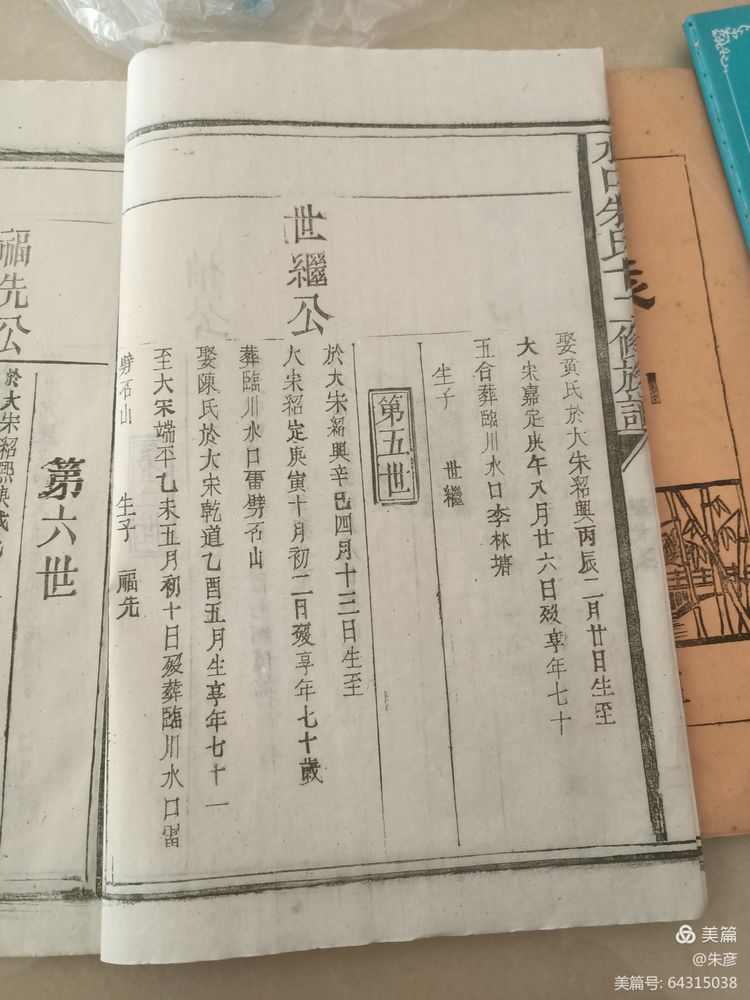 水口朱氏十二修族譜
娶黃氏於大宋紹興丙辰二月廿日生至
大宋嘉定庚午八月廿六日歿享年七十
五合葬臨川水口李林塘
生子 世繼
第五世
世繼公
於大宋紹興辛巳四月十三日生至
大宋紹定庚寅十月初二日歿享年七十歲
葬臨川水口雷劈石山
娶陳氏於大宋乾道乙酉五月生享年七十一
至大宋端平乙未五月初十日歿葬臨川水口雷
劈石山 生子 福先
第六世
福先公
於大宋紹熙庚戌
美篇
@朱彦
美篇号: 64315038